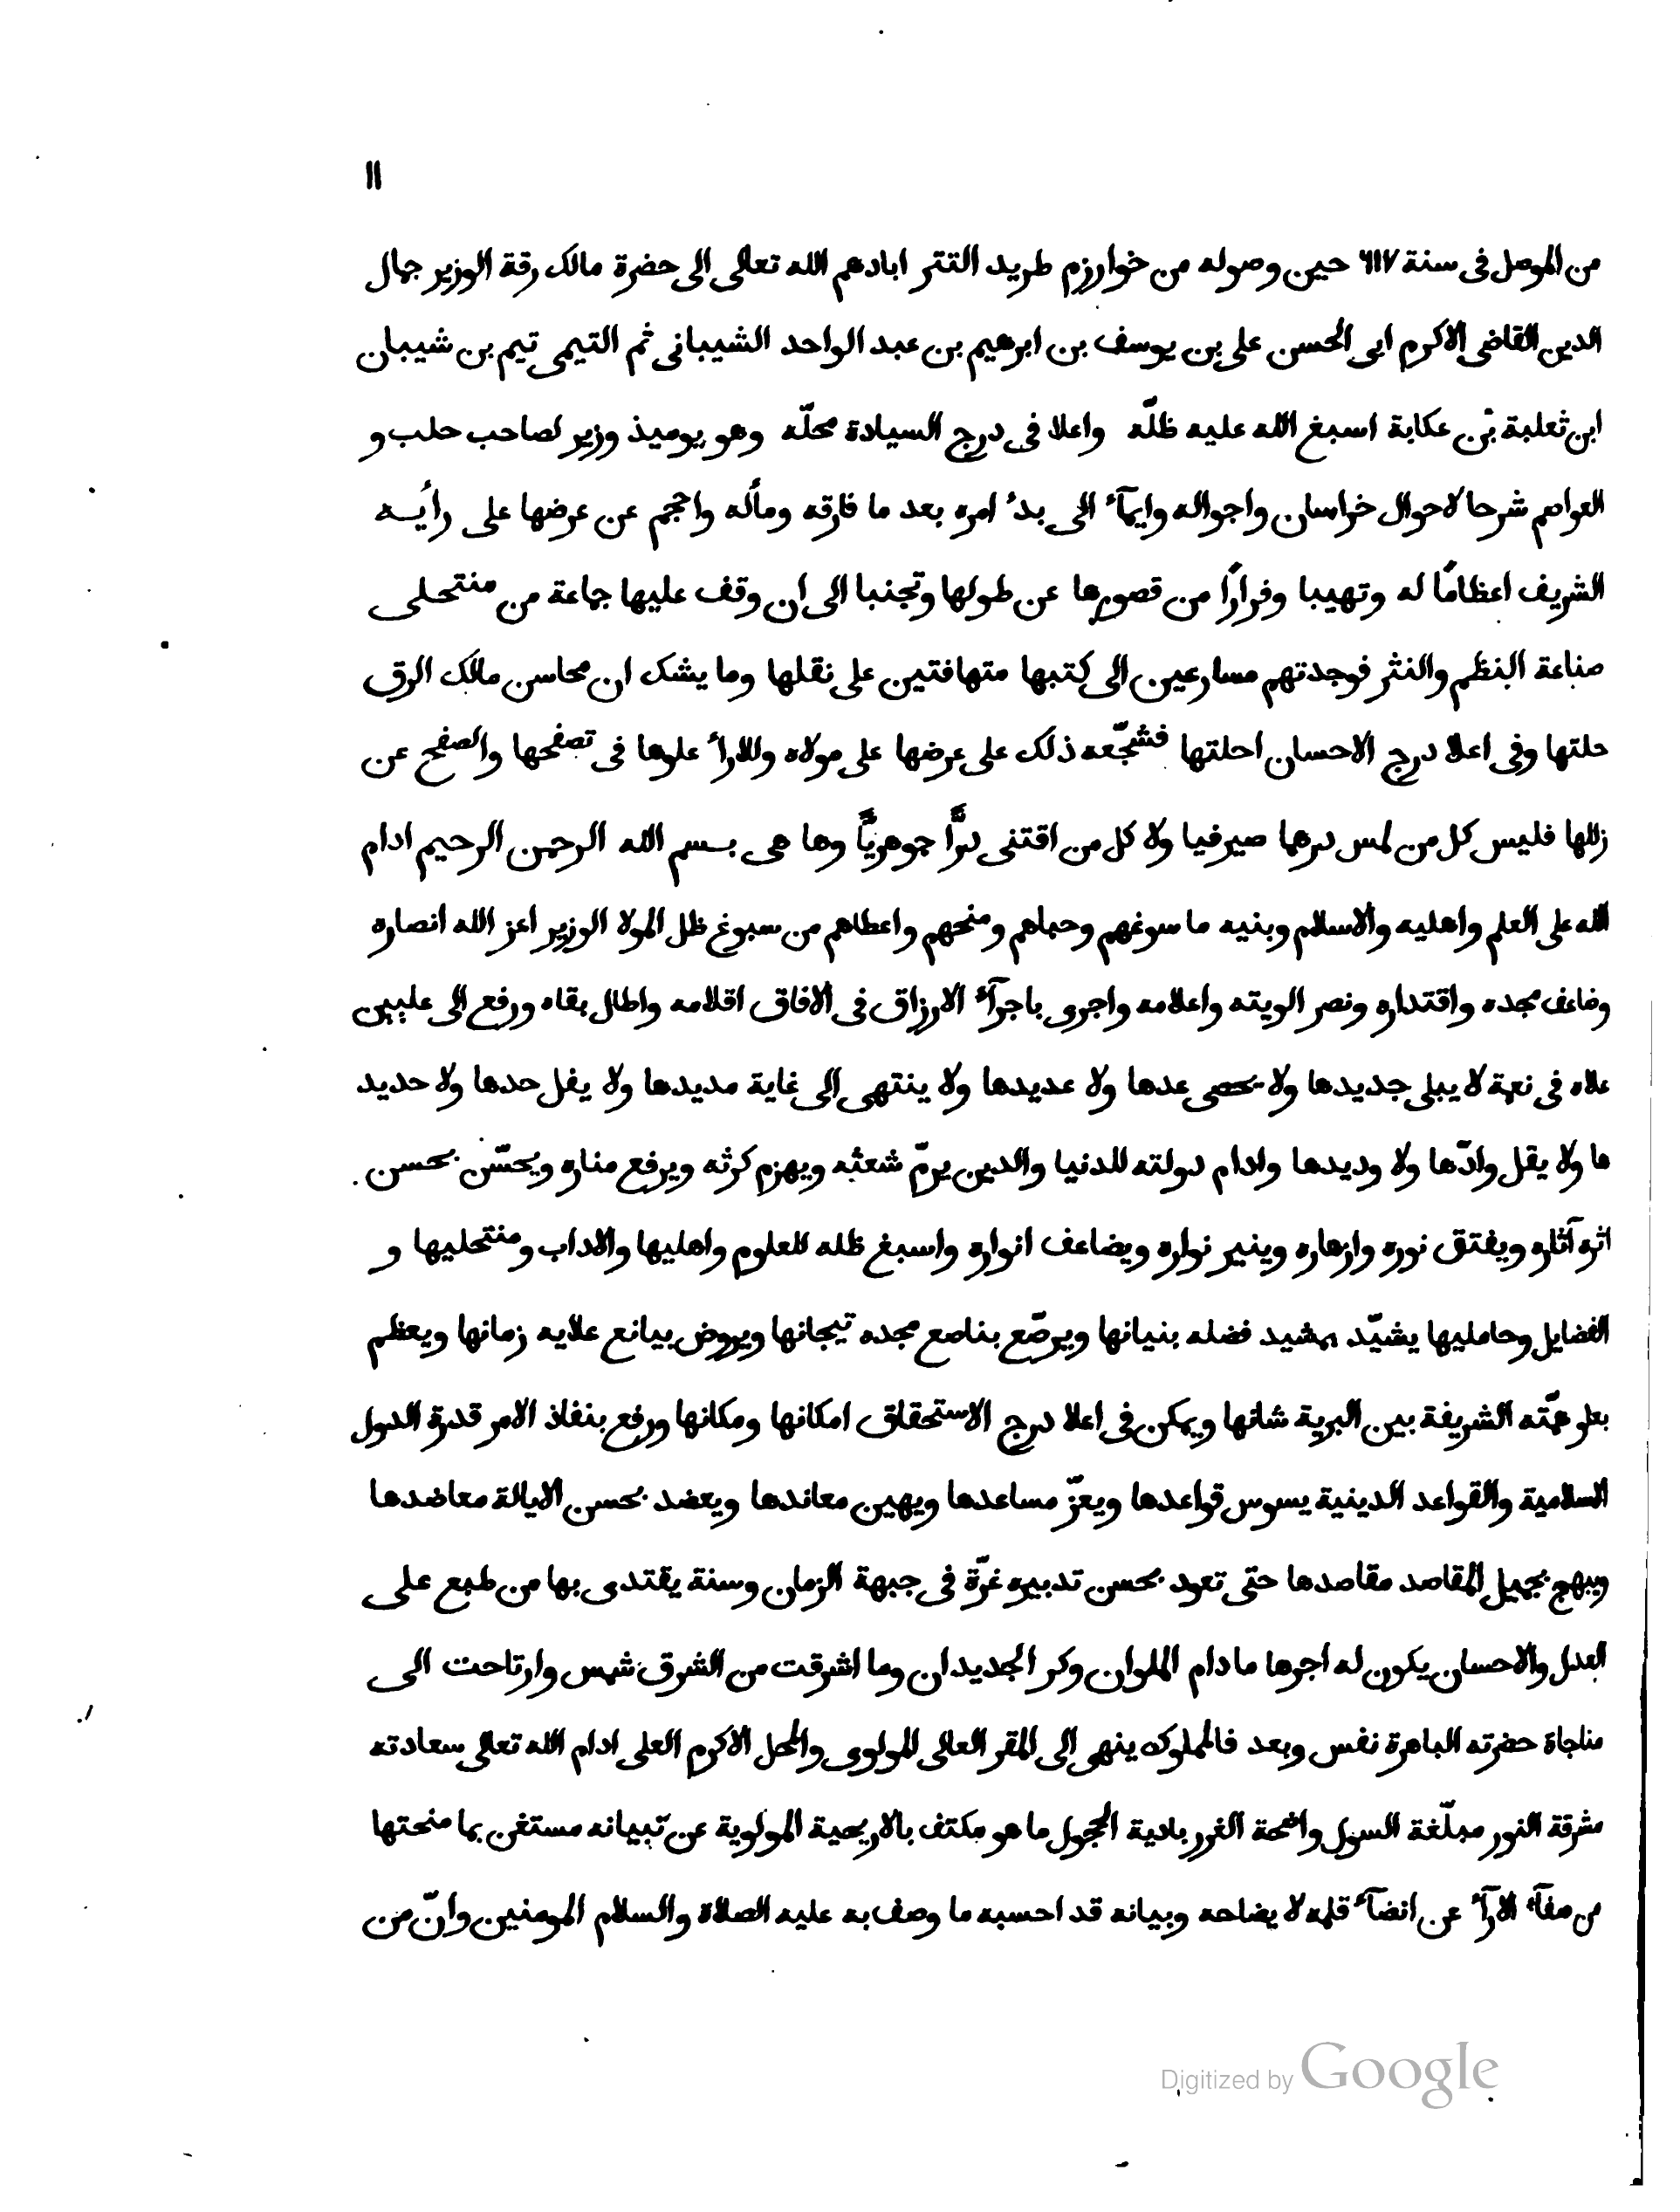 ١١
من الموصل فى سنة ٦١٧ حين وصوله من خوارزم طريد التتر ابادهم الله تعالى الى حضرة مالك رقة الوزير جمال
الدين القاضى الاكرم ابى الحسن على بن يوسف بن ابرهيم بن عبد الواحد الشيبانى ثم التيمى تيم بن شيبان
ابن ثعلبة بن عكابة اسبغ الله عليه ظلّه واعلا فى درج السيادة محلّه وهو يوميذ وزير لصاحب حلب و
العواصم شرحا لاحوال خراسان واحواله وايمآء الى بدء امره بعد ما فارقه ومآله واحجم عن عرضها على رأيه
الشريف اعظامًا له وتهيبا وفرارًا من قصورها عن طولها وتجنبا الى ان وقف عليها جماعة من منتحلى
صناعة النظم والنثر فوجدتهم مسارعين الى كتبها متهافتين على نقلها وما يشك ان محاسن مالك الرق
حلتها وفى اعلا درج الاحسان احلتها فشجّعه ذلك على عرضها على مولاه وللارأ علوها فى تصفحها والصفح عن
زللها فليس كل من لمس درهما صيرفيا ولا كل من اقتنى درًّا جوهريًّا وها هى بسم الله الرحمن الرحيم ادام
الله على العلم واهليه والاسلام وبنيه ما سوغهم وحباهم ومنحهم واعطاهم من سبوغ ظل المولا الوزير اعز الله انصاره
وضاعف مجده واقتداره ونصر الويته واعلامه واجرى باجرآء الارزاق فى الافاق اقلامه واطال بقاه ورفع الى عليين
علاه فى نعمة لا يبلى جديدها ولا يحصى عدها ولا عديدها ولا ينتهى الى غاية مديدها ولا يفل حدها ولا حديد
ها ولا يقل وادّها ولا وديدها وادام دولته للدنيا والدين يرمّ شعثه ويهزم كرثه ويرفع مناره ويحسّن بحسن
اثره آثاره ويفتق نوره وازهاره وينير نواره ويضاعف انواره واسبغ ظله للعلوم واهليها والاداب ومنتحليها و
الفضايل وحامليها يشيّد بمشيد فضله بنيانها ويرصّع بناصع مجده تيجانها ويروض بيانع علايه زمانها ويعظم
بعلو همّته الشريفة بين البرية شانها ويمكن فى اعلا درج الاستحقاق امكانها ومكانها ورفع بنفاذ الامر قدرة الدول
السلامية والقواعد الدينية يسوس قواعدها ويعزّ مساعدها ويهين معاندها ويعضد بحسن الايالة معاضدها
ويبهج بجميل المقاصد مقاصدها حتى تعود بحسن تدبيره غرّة فى جبهة الزمان وسنة يقتدى بها من طبع على
العدل والاحسان يكون له اجرها ما دام الملوان وكر الجديدان وما اشرقت من الشرق شمس وارتاحت الى
مناجاة حضرته الباهرة نفس وبعد فالمملوك ينهى الى المقر العالى المولوى والمحل الاكرم العلى ادام الله تعالى سعادته
مشرقة النور مبلّغة السول واضحة الغرر بادية الحجول ما هو مكتف بالاريحية المولوية عن تبيانه مستغن بما منحتها
من صفآء الارآء عن انضآء قلمه لايضاحه وبيانه قد احسبه ما وصف به عليه الصلاة والسلام المومنين وانّ من
Digitized by Google